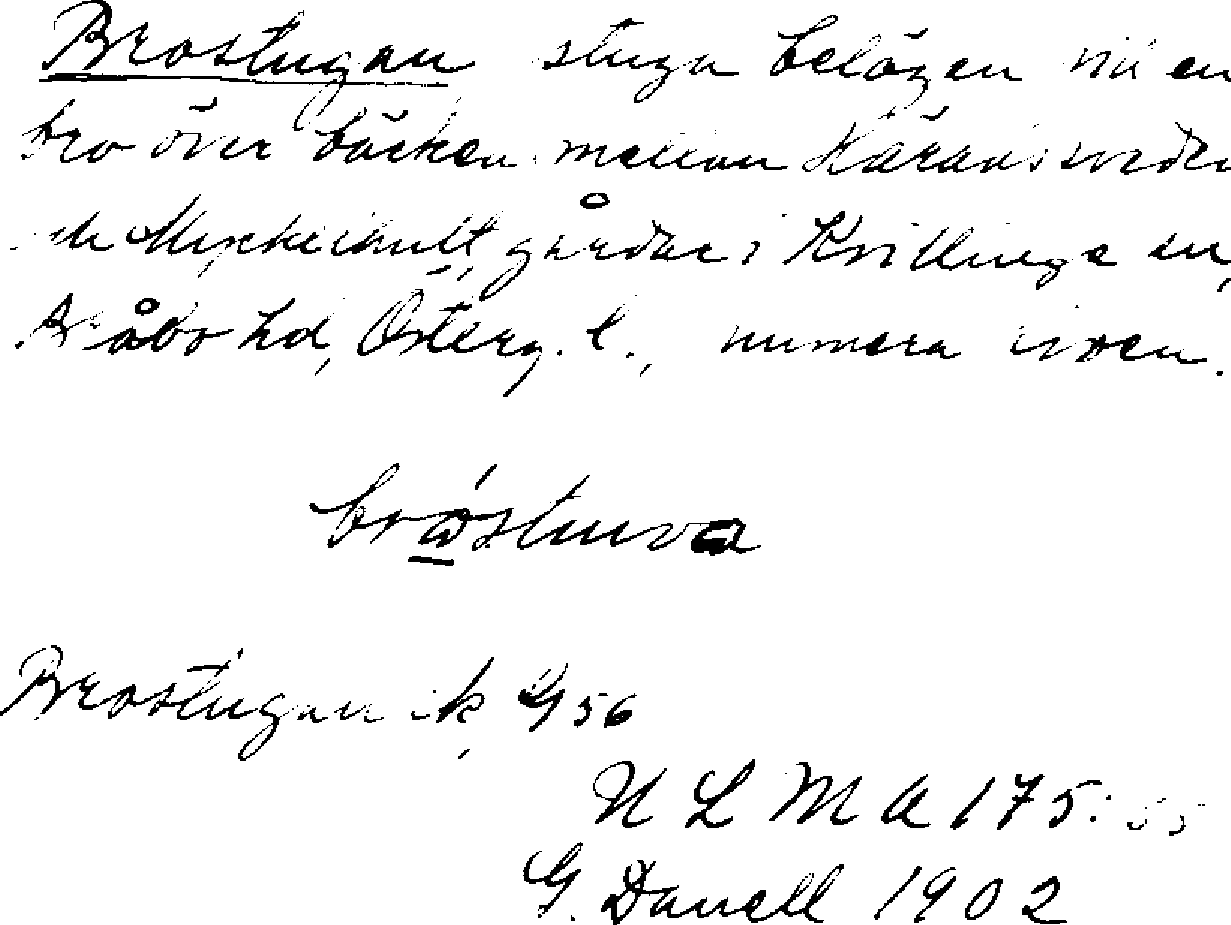 Brostugan stuga belägen vid en
bro över bäcken mellan
gårdar i Kvillinge sn,
Bråbo hd, Österg. l., numera riven.
brǻstuva
Brostugan ek G 56
ULMA 175: 55
G. Danell 1902